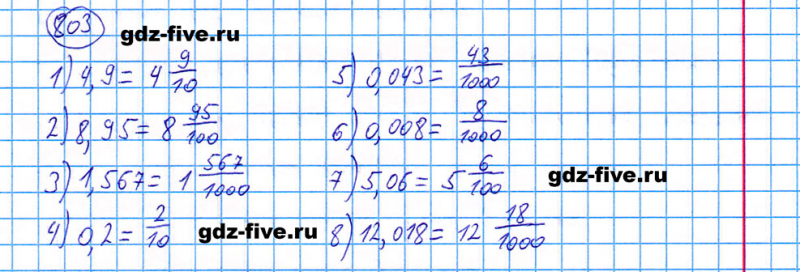 803
gdz-five.ru
1) 4,9 = 4 9/10
2) 8,95 = 8 95/100
3) 1,567 = 1 567/1000
4) 0,2 = 2/10
gdz-five.ru
5) 0,043 = 43/1000
6) 0,008 = 8/1000
7) 5,06 = 5 6/100
gdz-five.ru
8) 12,018 = 12 18/1000